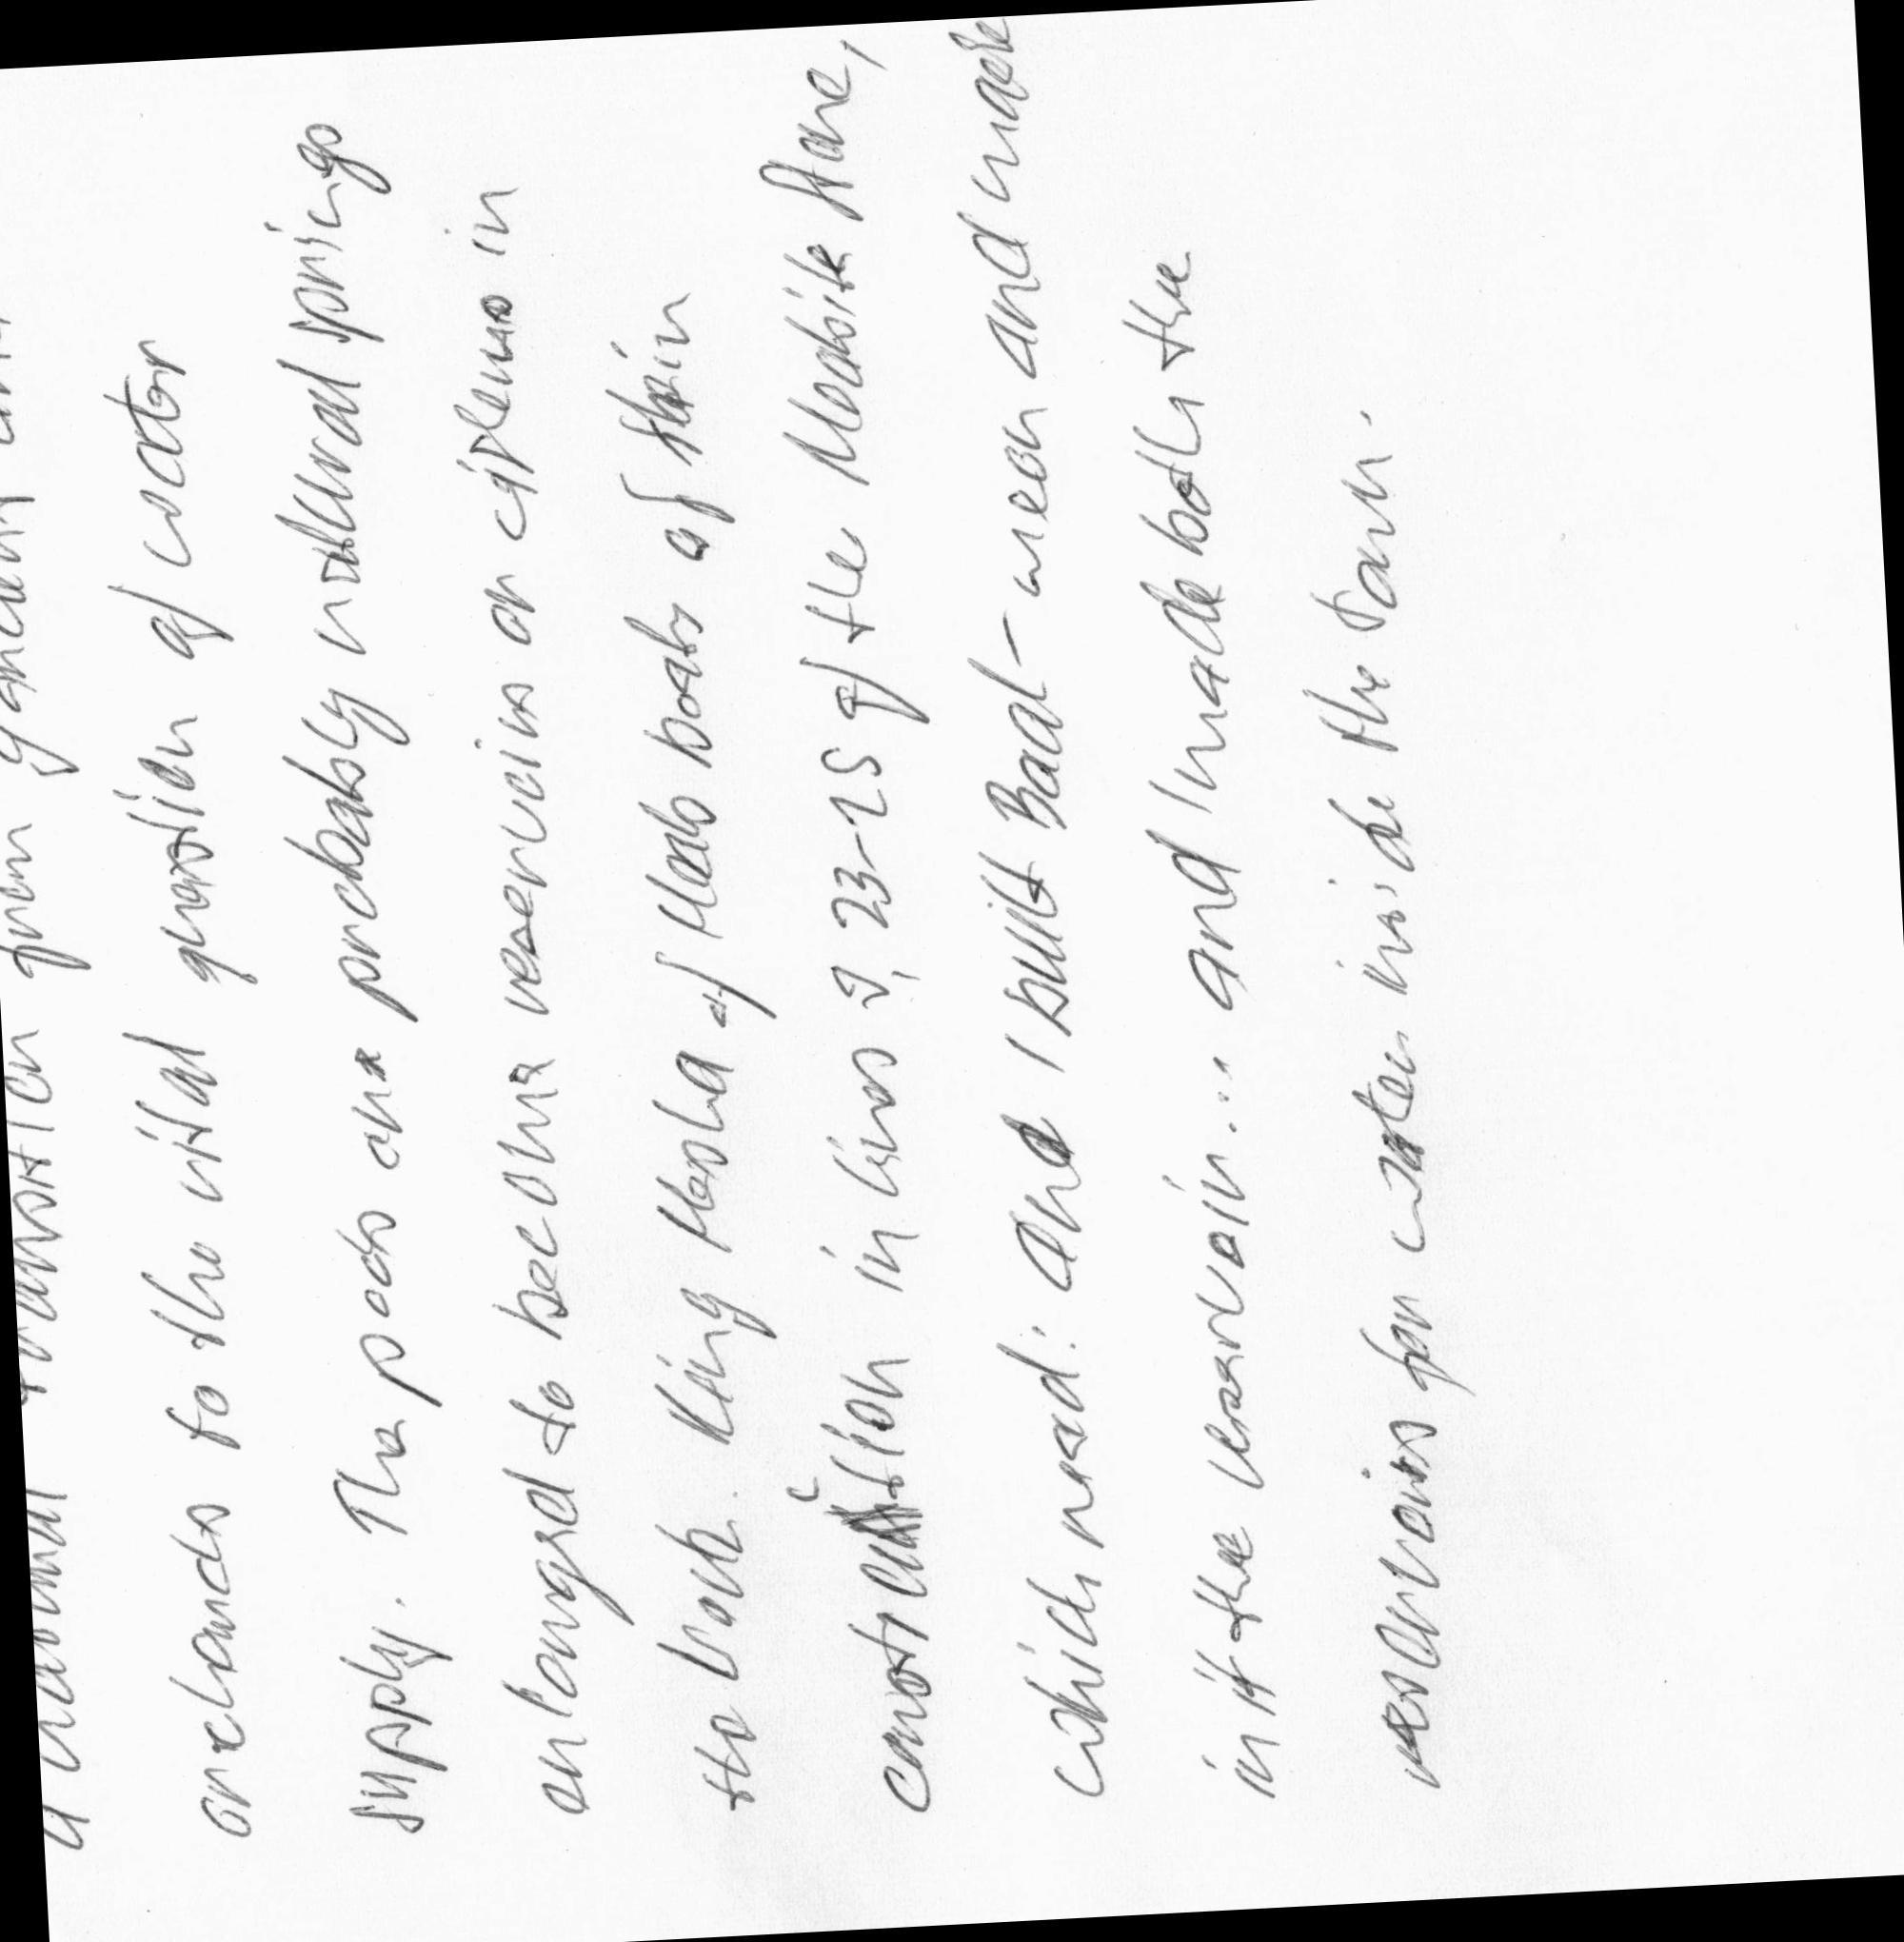 a natural transition from gardens and
orchards to the vital question of water
supply. The pools are probably natural springs
enlarged to become reservoirs or cisterns in
the rock. King Mesha of Moab boats of their
construction in lines 9, 23-25 of the Moabite Stone,
which read: And I built Baal-meon and made
in it the reservoir... and I made both the
reservoirs for water inside the town.